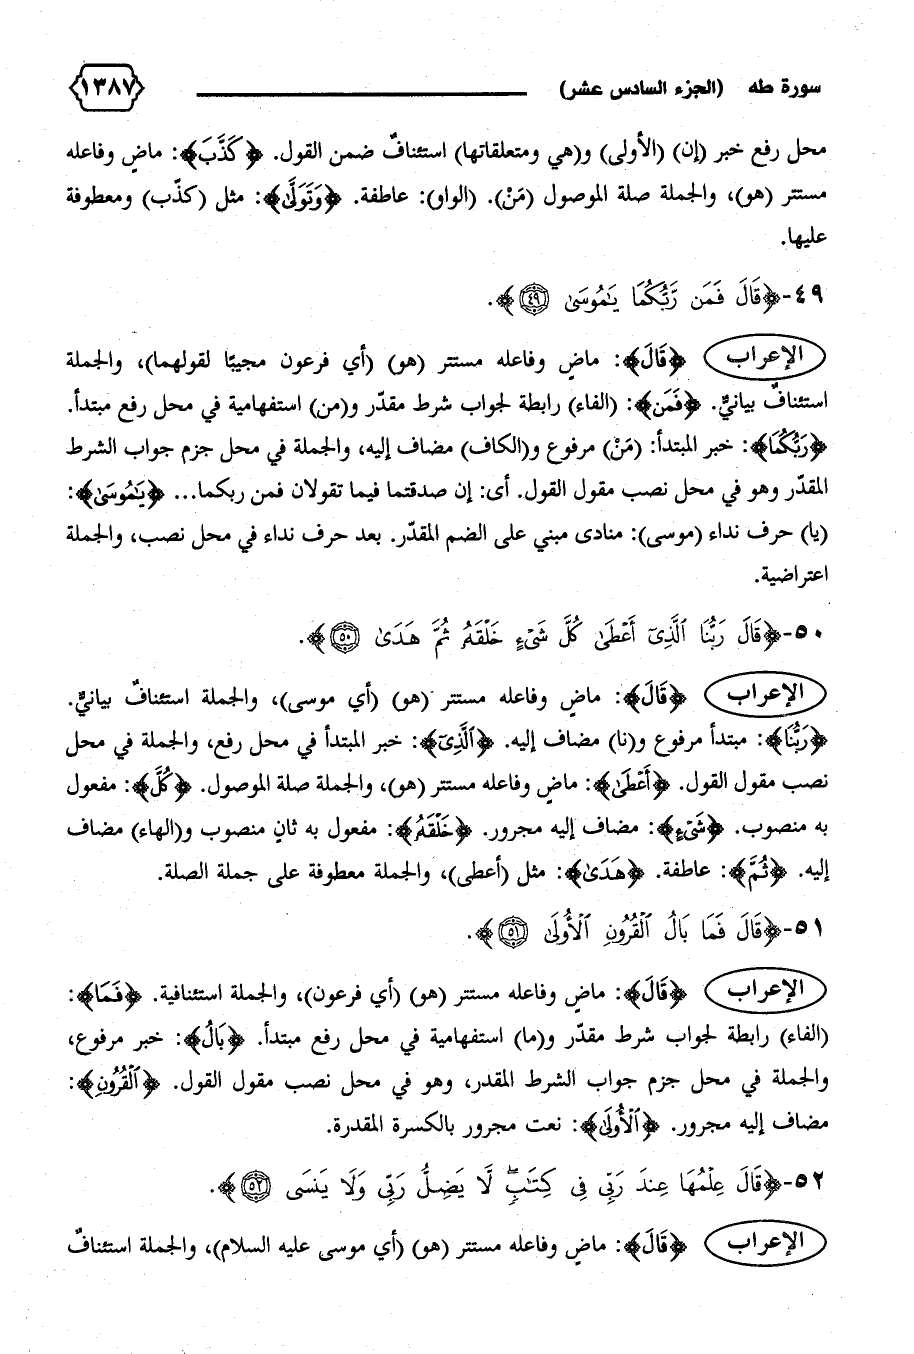 سورة طه (الجزء السادس عشر) ١٣٨٧
محل رفع خبر (إن) (الأولى) و(هي ومتعلقاتها) استئنافٌ ضمن القول. ﴿كَذَّبَ﴾: ماضٍ وفاعله
مستتر (هو)، والجملة صلة الموصول (مَنْ). (الواو): عاطفة. ﴿وَتَوَلَّىٰ﴾: مثل (كذّب) ومعطوفة
عليها.
٤٩-﴿قَالَ فَمَن رَّبُّكُمَا يَٰمُوسَىٰ ٤٩﴾.
الإعراب ﴿قَالَ﴾: ماضٍ وفاعله مستتر (هو) (أي فرعون مجيبًا لقولهما)، والجملة
استئنافٌ بيانيٌّ. ﴿فَمَن﴾: (الفاء) رابطة لجواب شرط مقدّر و(من) استفهامية في محل رفع مبتدأ.
﴿رَبُّكُمَا﴾: خبر المبتدأ: (مَنْ) مرفوع و(الكاف) مضاف إليه، والجملة في محل جزم جواب الشرط
المقدّر وهو في محل نصب مقول القول. أى: إن صدقتما فيما تقولان فمن ربكما... ﴿يَٰمُوسَىٰ﴾:
(يا) حرف نداء (موسى): منادى مبني على الضم المقدّر. بعد حرف نداء في محل نصب، والجملة
اعتراضية.
٥٠-﴿قَالَ رَبُّنَا ٱلَّذِىٓ أَعْطَىٰ كُلَّ شَىْءٍ خَلْقَهُۥ ثُمَّ هَدَىٰ ٥٠﴾.
الإعراب ﴿قَالَ﴾: ماضٍ وفاعله مستتر (هو) (أي موسى)، والجملة استئنافٌ بيانيٌّ.
﴿رَبُّنَا﴾: مبتدأ مرفوع و(نا) مضاف إليه. ﴿ٱلَّذِىٓ﴾: خبر المبتدأ في محل رفع، والجملة في محل
نصب مقول القول. ﴿أَعْطَىٰ﴾: ماضٍ وفاعله مستتر (هو)، والجملة صلة الموصول. ﴿كُلَّ﴾: مفعول
به منصوب. ﴿شَىْءٍ﴾: مضاف إليه مجرور. ﴿خَلْقَهُۥ﴾: مفعول به ثانٍ منصوب و(الهاء) مضاف
إليه. ﴿ثُمَّ﴾: عاطفة. ﴿هَدَىٰ﴾: مثل (أعطى)، والجملة معطوفة على جملة الصلة.
٥١-﴿قَالَ فَمَا بَالُ ٱلْقُرُونِ ٱلْأُولَىٰ ٥١﴾.
الإعراب ﴿قَالَ﴾: ماضٍ وفاعله مستتر (هو) (أي فرعون)، والجملة استئنافية. ﴿فَمَا﴾:
(الفاء) رابطة لجواب شرط مقدّر و(ما) استفهامية في محل رفع مبتدأ. ﴿بَالُ﴾: خبر مرفوع،
والجملة في محل جزم جواب الشرط المقدر، وهو في محل نصب مقول القول. ﴿ٱلْقُرُونِ﴾:
مضاف إليه مجرور. ﴿ٱلْأُولَىٰ﴾: نعت مجرور بالكسرة المقدرة.
٥٢-﴿قَالَ عِلْمُهَا عِندَ رَبِّى فِى كِتَٰبٍۖ لَّا يَضِلُّ رَبِّى وَلَا يَنسَى ٥٢﴾.
الإعراب ﴿قَالَ﴾: ماضٍ وفاعله مستتر (هو) (أي موسى عليه السلام)، والجملة استئنافٌ